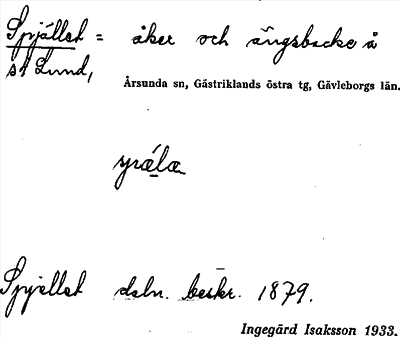 Spjället = åker och ängsbacke å
st Lund,
Årsunda sn, Gästriklands östra tg, Gävleborgs län.
Spjellet dsbn. beskr. 1879.
Ingegärd Isaksson 1933.